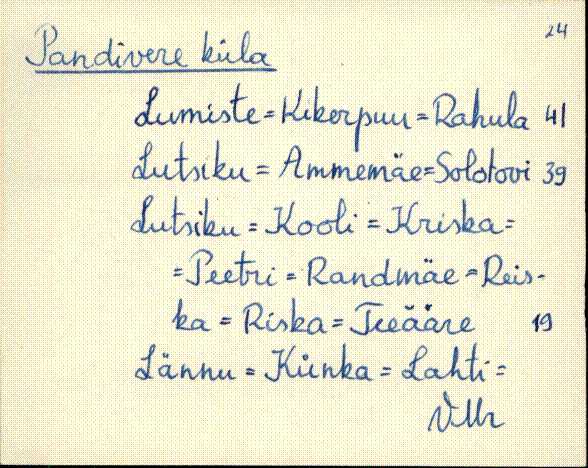 24
Pandivere küla
Lumiste = Kikerpuu = Rahula 41
Lutsiku = Ammemäe = Solotovi 39
Lutsiku = Kooli = Kriska =
= Peetri = Randmäe = Reis-
ka = Riska = Teeääre 19
Lännu = Künka = Lahti =